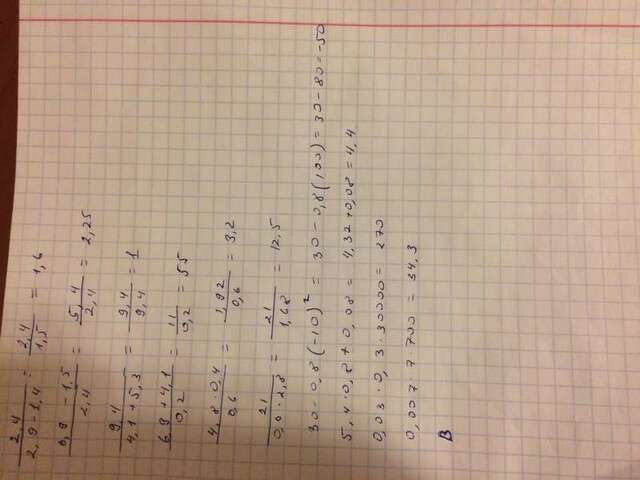 2,4 / 2,9-1,4 = 2,4 / 1,5 = 1,6
6,9 - 1,5 / 2,4 = 5,4 / 2,4 = 2,25
9,4 / 4,1+5,3 = 9,4 / 9,4 = 1
6,9+4,1 / 0,2 = 11 / 0,2 = 55
4,8·0,4 / 0,6 = 1,92 / 0,6 = 3,2
21 / 0,6·2,8 = 21 / 1,68 = 12,5
30-0,8(-10)² = 30-0,8(100)=30-80=-50
5,4·0,8+0,08= 4,32+0,08=4,4
0,03·0,3·30000= 270
0,007·7·700 = 34,3
В